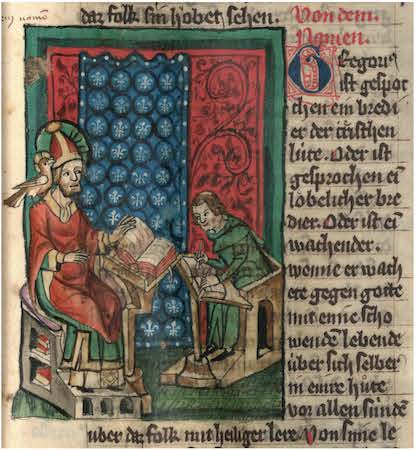 daz folk sin hobet sehen.
Von dem.
Namen.
Gregoriꝰ
ist gespro
chen ein bredi
er der tüschen
lüte. Oder ist
gesprochen eī
lobelicher bre
dier. Oder ist eī
wachender.
wenne er wach
ete gegen gotte
mit enne scho
wende lebende
über sich selber
in einre hüte
vor allen sündē
über daz folk mit heiliger lere Von sime le